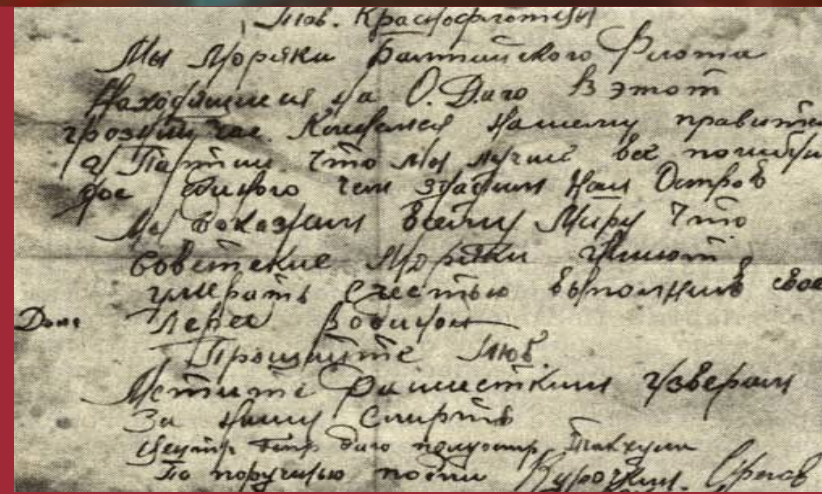 Тов. Краснофлотцы
Мы Моряки Балтийского Флота
Находящиеся на О. Даго В этот
грозный час Клянемся Нашему правител
и Партии Что мы лучше все погибн
до единого чем здадим Наш Остров
Мы Докажем всему Миру Что
Советские Моряки умеют
умерать Счестью выполнив свое
Долг Перед Родиной
Прощайте Тов.
Мстите Фашистким Изверам
За Нашу Смерть
Даго полуостр. Такхуна
По поручению подпи Курочкин.